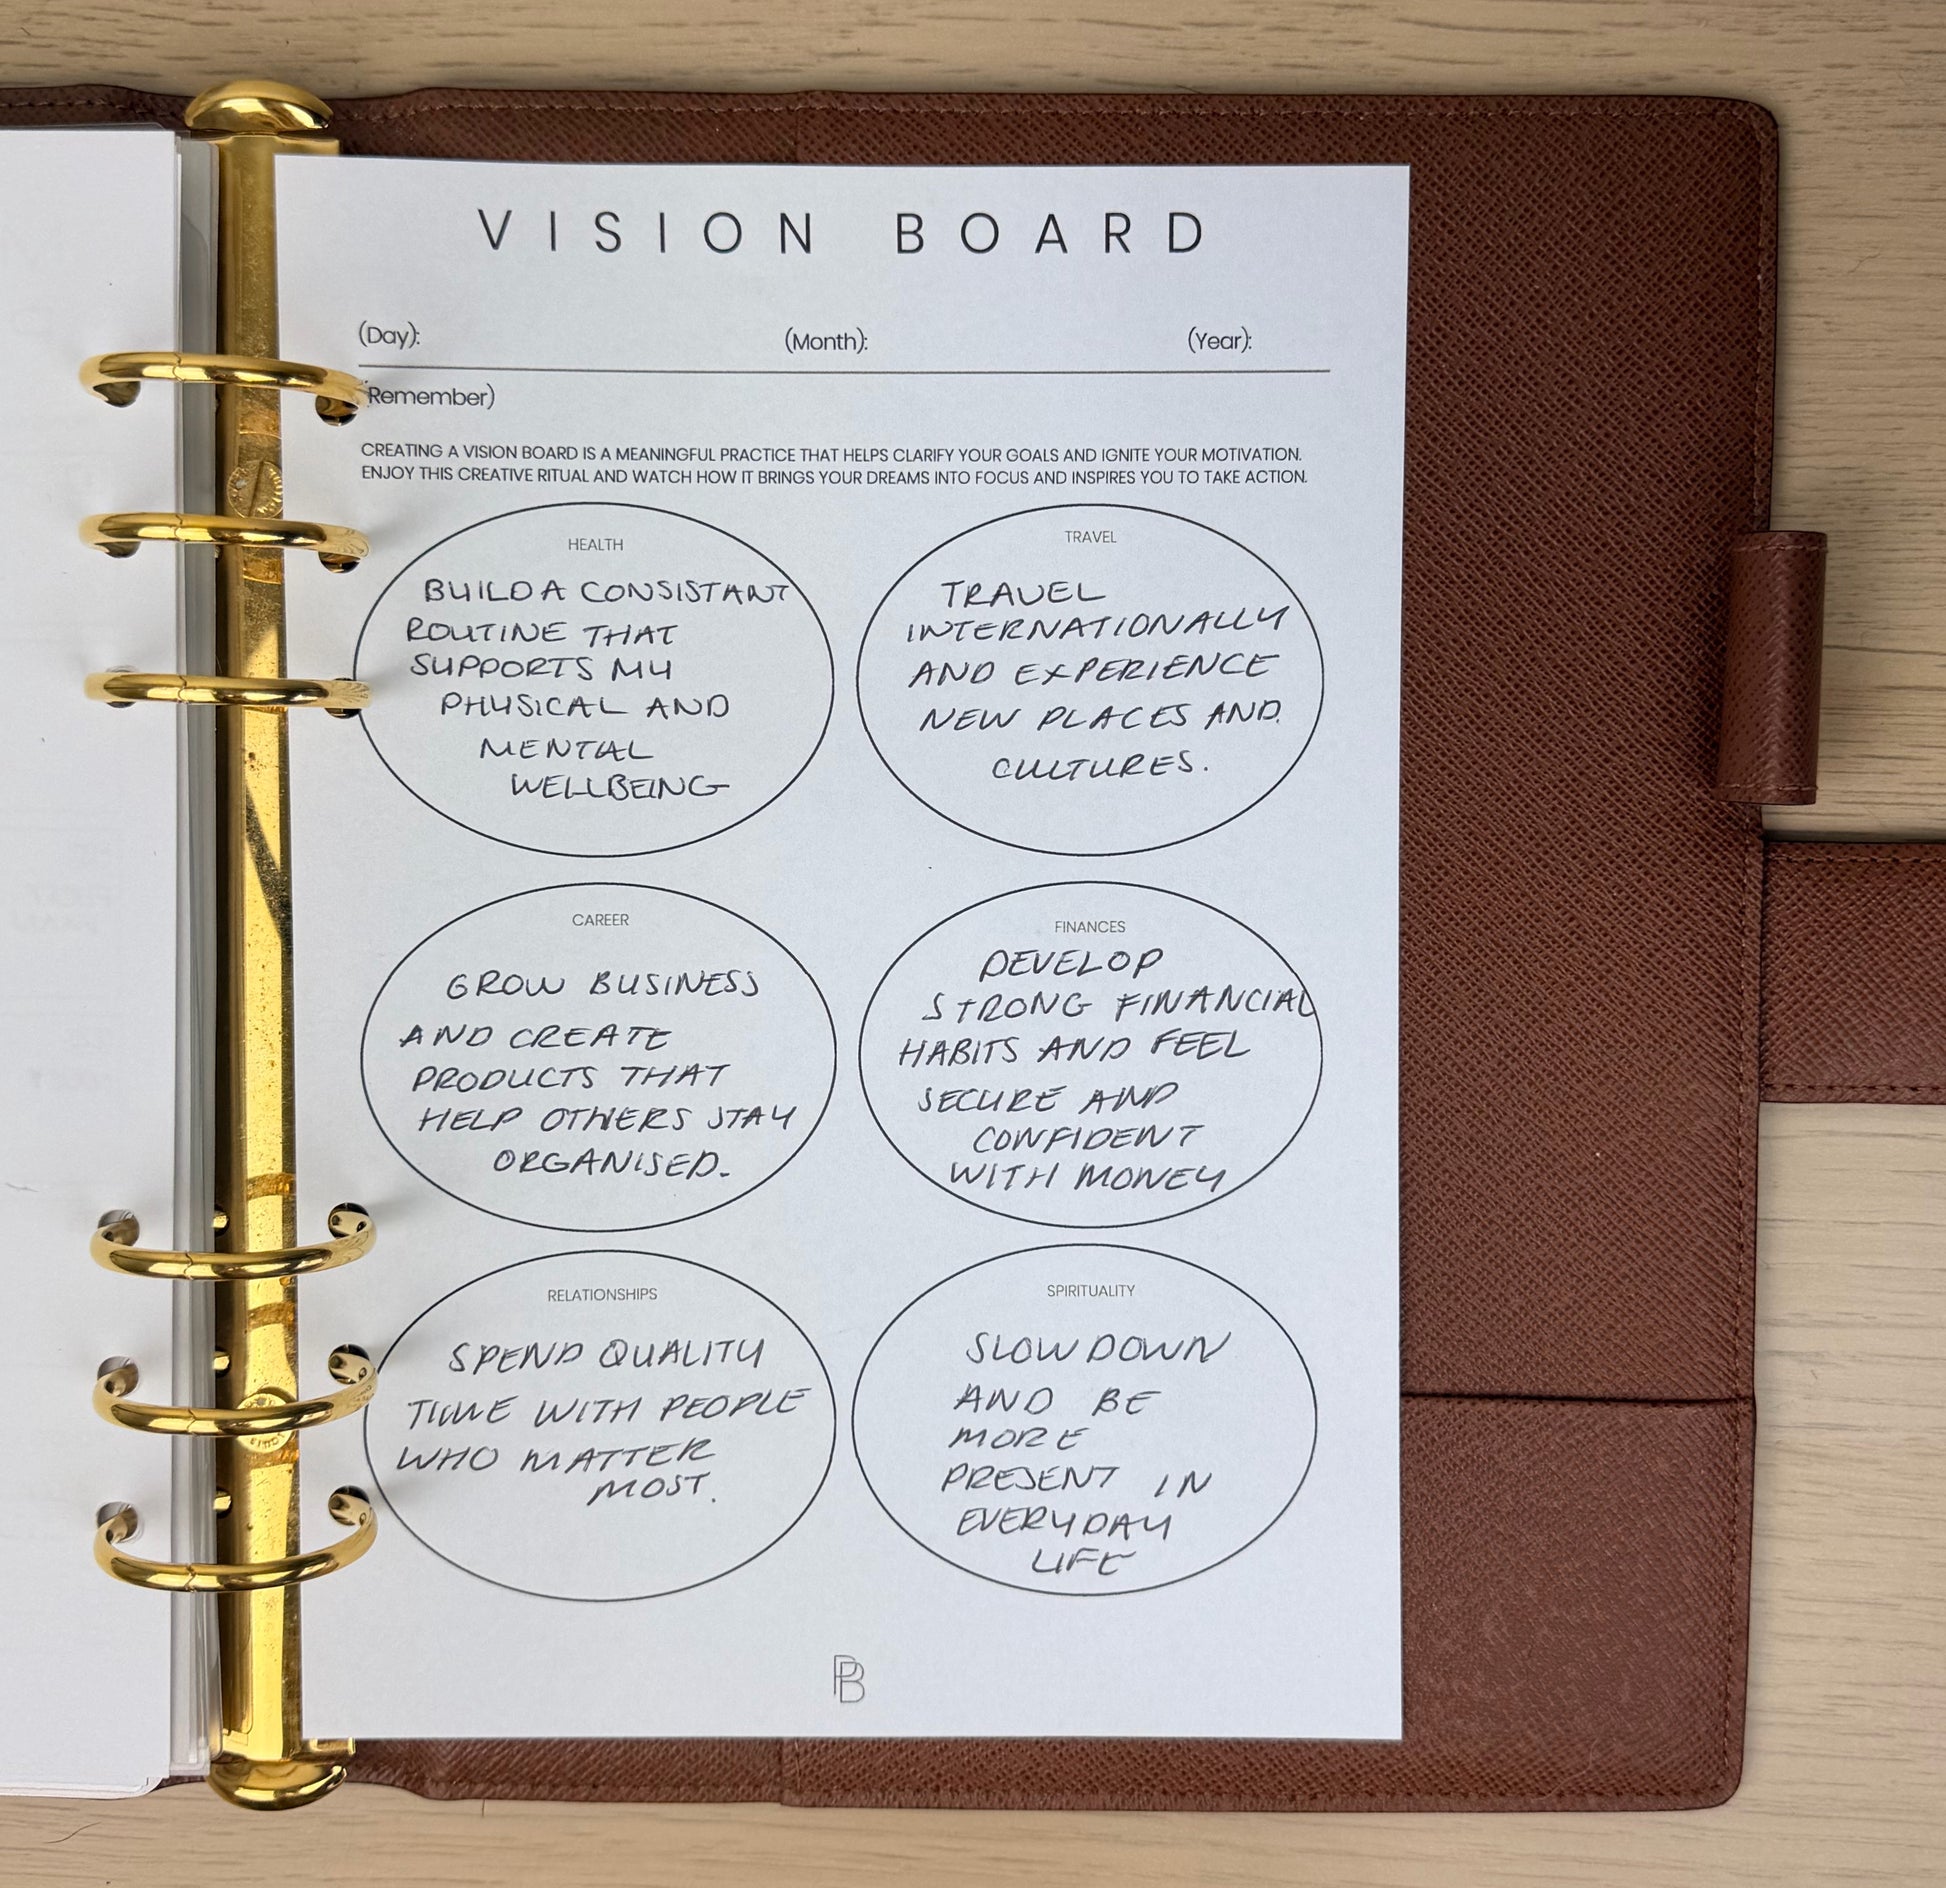 VISION BOARD
(Day): (Month): (Year):
(Remember)
CREATING A VISION BOARD IS A MEANINGFUL PRACTICE THAT HELPS CLARIFY YOUR GOALS AND IGNITE YOUR MOTIVATION.
ENJOY THIS CREATIVE RITUAL AND WATCH HOW IT BRINGS YOUR DREAMS INTO FOCUS AND INSPIRES YOU TO TAKE ACTION.
HEALTH
BUILD A CONSISTANT
ROUTINE THAT
SUPPORTS MY
PHYSICAL AND
MENTAL
WELLBEING
TRAVEL
TRAVEL
INTERNATIONALLY
AND EXPERIENCE
NEW PLACES AND
CULTURES.
CAREER
GROW BUSINESS
AND CREATE
PRODUCTS THAT
HELP OTHERS STAY
ORGANISED.
FINANCES
DEVELOP
STRONG FINANCIAL
HABITS AND FEEL
SECURE AND
CONFIDENT
WITH MONEY
RELATIONSHIPS
SPEND QUALITY
TIME WITH PEOPLE
WHO MATTER
MOST.
SPIRITUALITY
SLOW DOWN
AND BE
MORE
PRESENT IN
EVERYDAY
LIFE
PB